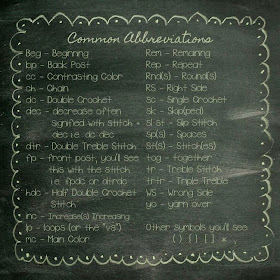 Common Abbreviations
Beg - Beginning
bp - Back Post
cc - Contrasting Color
ch - Chain
dc - Double Crochet
dec - decrease often
signified with stitch
dec i.e. dc dec
dtr - Double Treble Stitch
fp - front post, you'll see
this with the stitch
i.e. fpdc or dtrdc
hdc - Half Double Crochet
Stitch
inc - Increase(s) Increasing
lp - loops (or the "vs")
mc - Main Color
Rem - Remaining
Rep - Repeat
Rnd(s) - Round(s)
RS - Right Side
Sc - Single Crochet
Sk - Skip(ped)
Sl st - Slip Stitch
Sp(s) - Spaces
St(s) - Stitch(es)
tog - together
tr - Treble
trtr - Triple Treble
WS - Wrong Side
yo - yarn over
Other symbols you'll see
( ) { } [ ] * ,